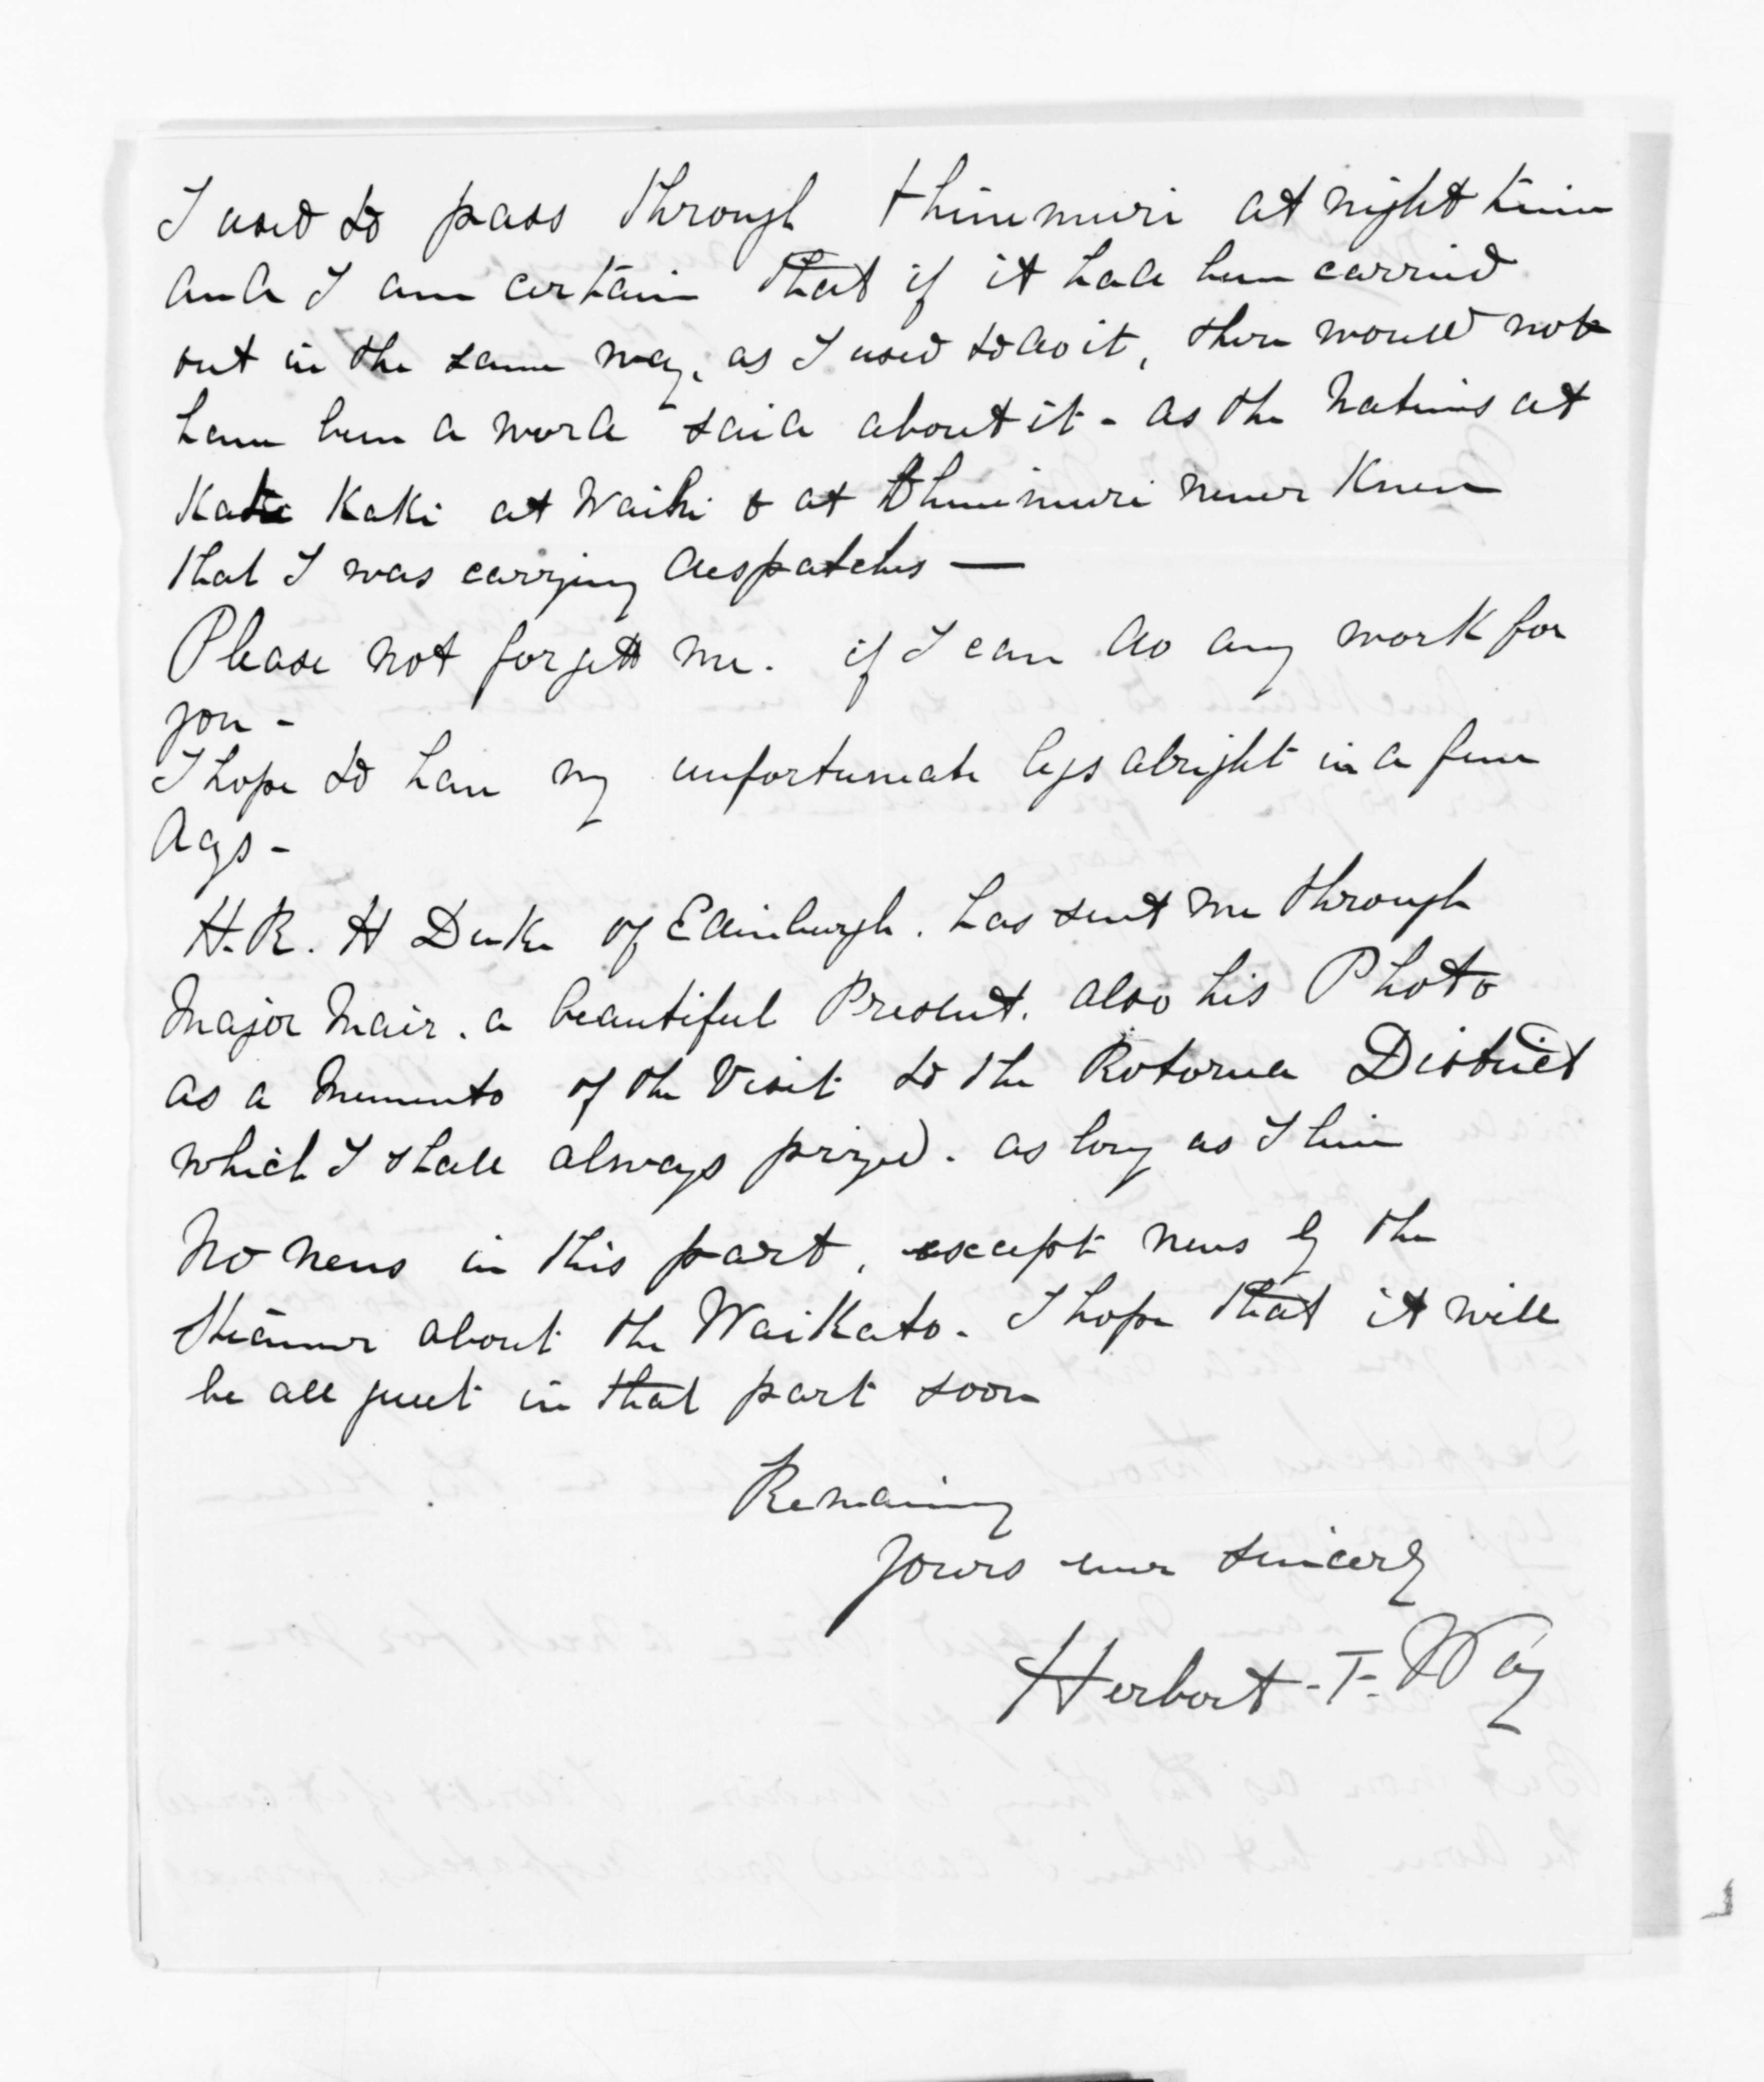 I used to pass through Ohinimuri at night time
and I am certain that if it had been carried
out in the same way, as I used to do it, there would not
have been a word said about it - as the Natives at
Kati Kati at Waihi & at Ohinimuri never knew
that I was carrying despatches —
Please not forgett me. if I can do any work for
you -
I hope to have my unfortunate legs alright in a few
days -
H.R.H Duke of Edinburgh. has sent me through
Major Mair. a beautiful Present. also his Photo
as a Memento of the Visit to the Rotorua District
which I shall always prized. as long as I live
No news in this part, except news by the
Steamer about the Waikato. I hope that it will
be all quiet in that part soon
Remaining
Yours ever sincerly
Herbert - T. Way